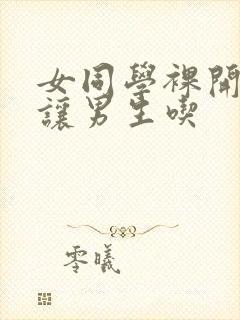 女同學裸開
讓男生喫
零曦